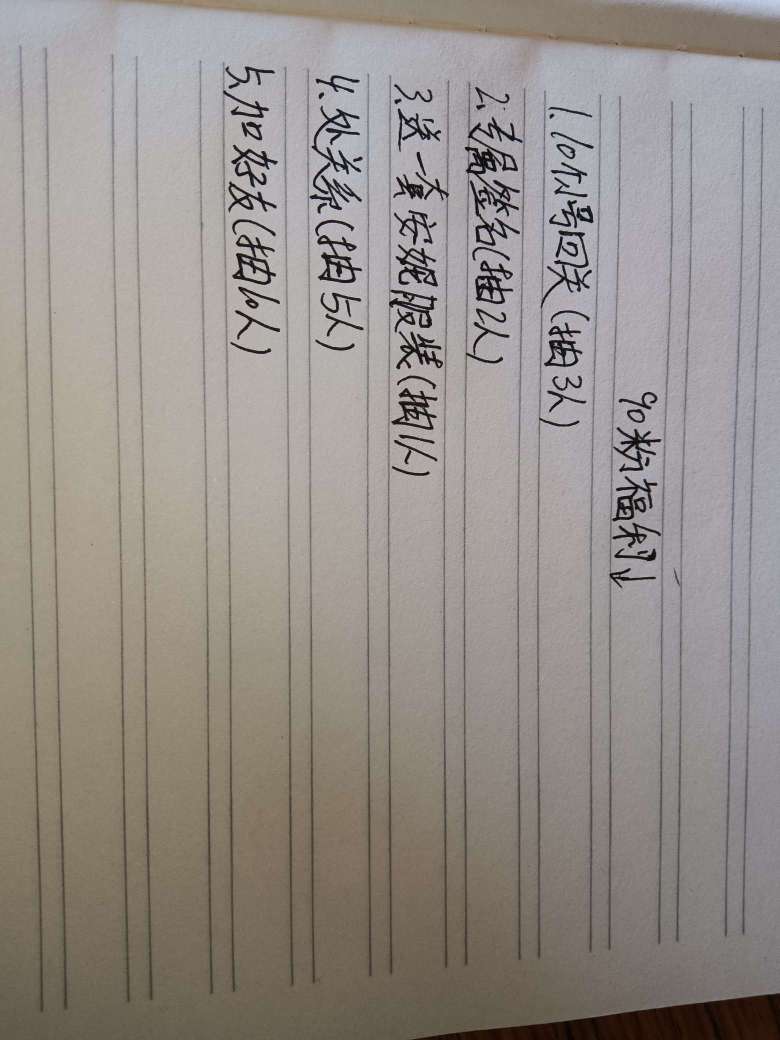 90粉福利↓
1.10个小号回关(抽3人)
2.专属签名(抽2人)
3.送一套安妮服装(抽1人)
4.处关系(抽5人)
5.加好友(抽10人)